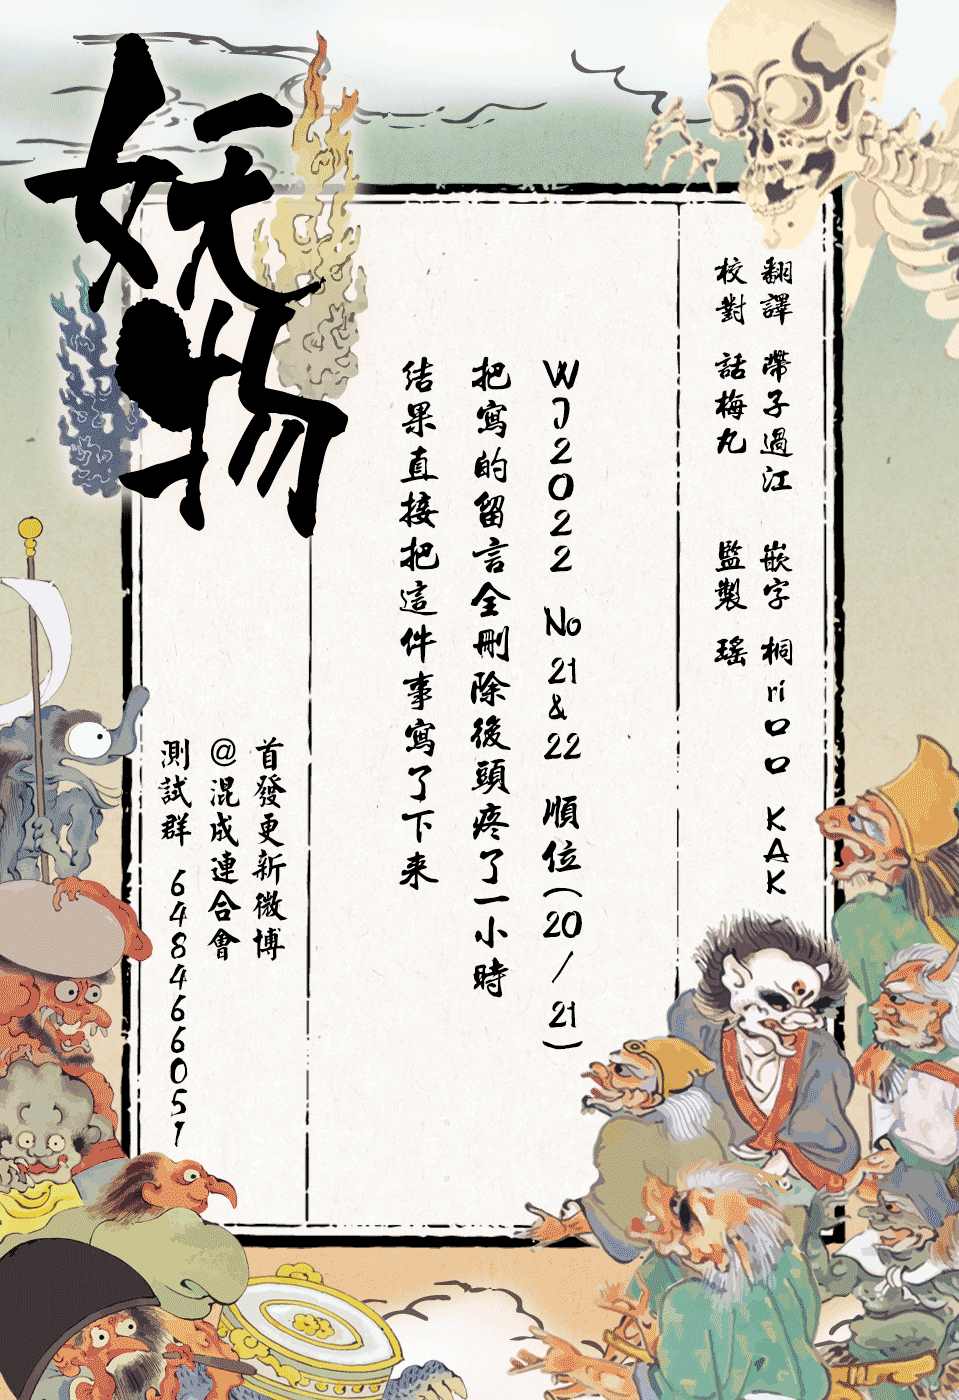 妖物
翻譯 帶子過江 嵌字 桐ri口口 KAK
校對 話梅丸 監製 瑤
WJ2022 No21&22 順位(20/21)
把寫的留言全刪除後頭疼了一小時
結果直接把這件事寫了下来
首發更新微博
@混成連合會
測試群 648466051